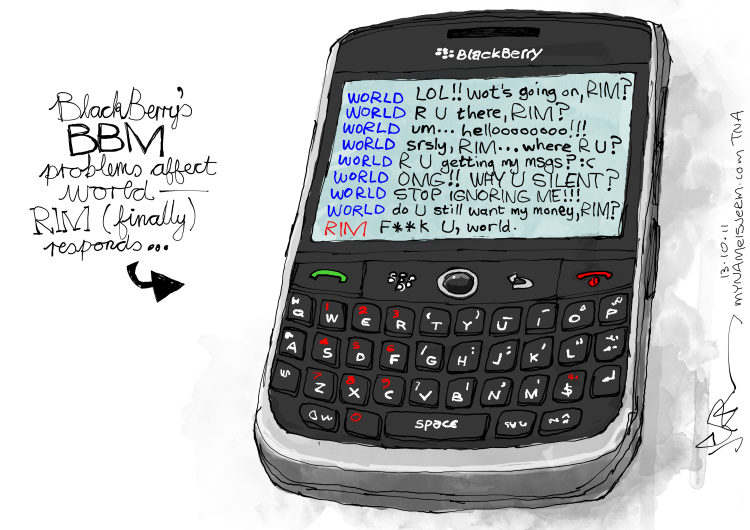 BlackBerry's
BBM
problems affect
world —
RIM (finally)
responds...
BlackBerry
WORLD LOL!! wot's going on, RIM?
WORLD R U there, RIM?
WORLD um... hellooooooooo!!!
WORLD srsly, RIM... where R U?
WORLD R U getting my msgs? :c
WORLD OMG!! WHY U SILENT?
WORLD STOP IGNORING ME!!!
WORLD do U still want my money, RIM?
RIM F**k U, world.
Q W E R T Y U I O P
A S D F G H J K L
Z X C V B N M $
0 SPACE
13.10.11
MYNAMEISJEREM.com TNA